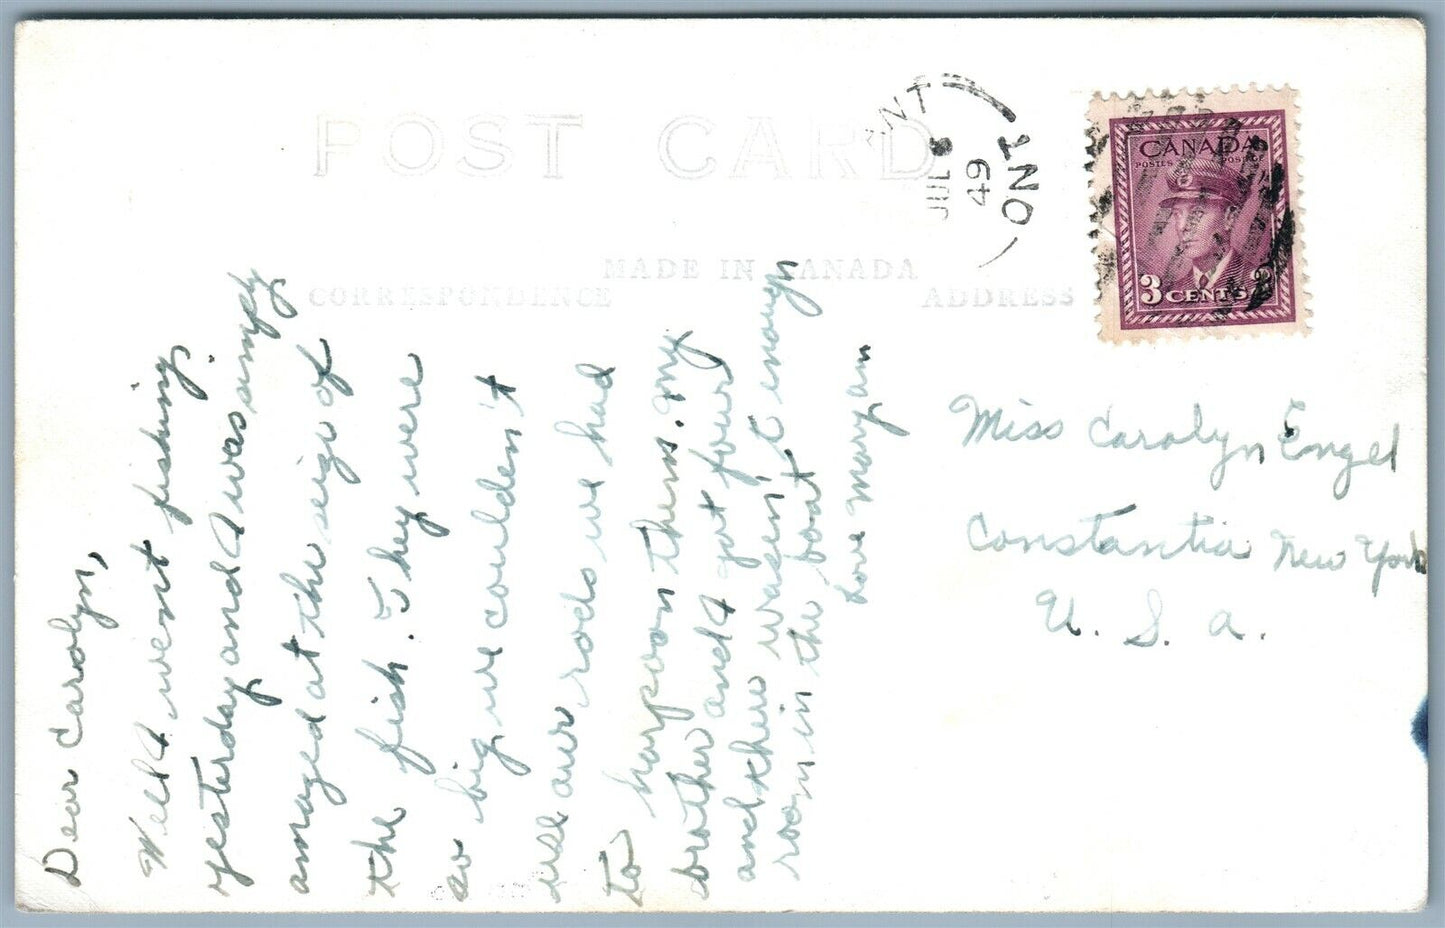 POST CARD
MADE IN CANADA
CORRESPONDENCE
ADDRESS
ANT
ONT
JUL 6
49
CANADA
POSTES POSTAGE
3 CENTS 3
Dear Carolyn,
Well I went fishing
yesterday and I was simply
amazed at the seize of
the fish. They were
so big we couldn't
use our rods we had
to harpoon them. My
brother and I got four
and there wasen't enough
room in the boat
Love Maryan
Miss Carolyn Engel
Constantia New York
U. S. A.